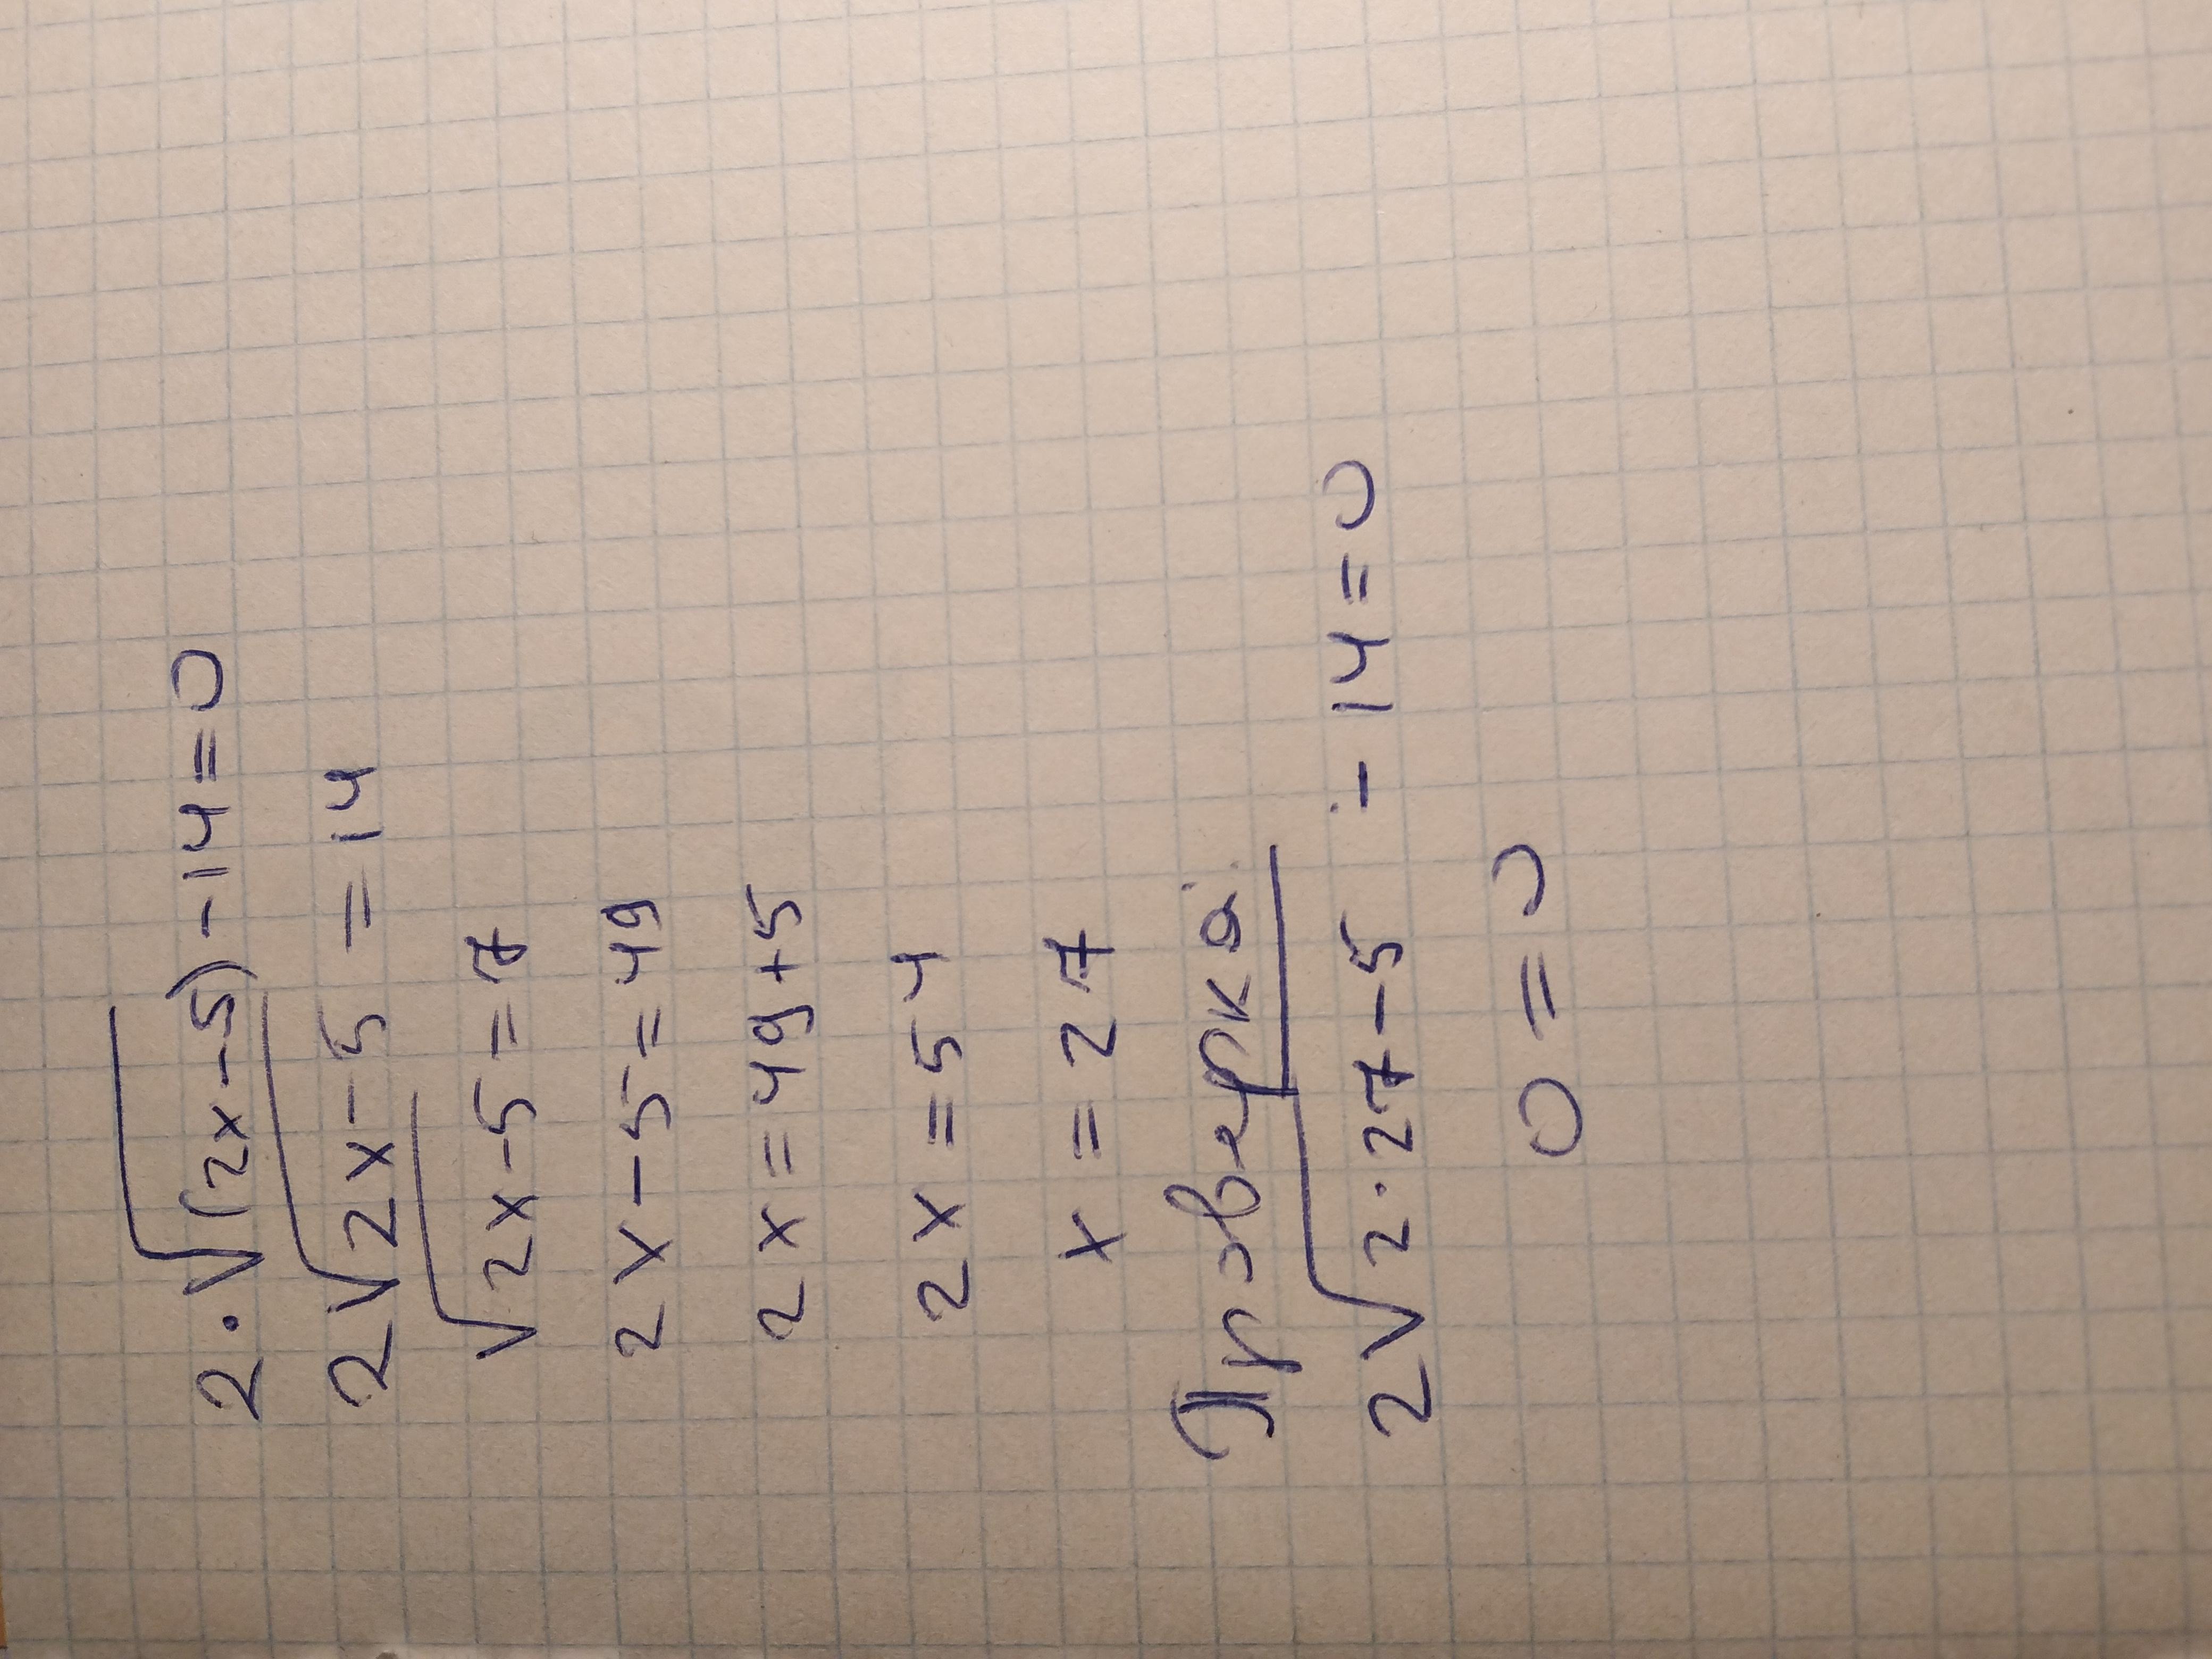 2·√(2x-5)-14=0
2√2x-5=14
√2x-5=7
2x-5=49
2x=49+5
2x=54
x=27
Проверка:
2√2·27-5-14=0
0=0